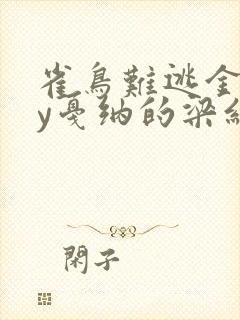 雀鳥難逃金
y戛纳的梁組
閑子